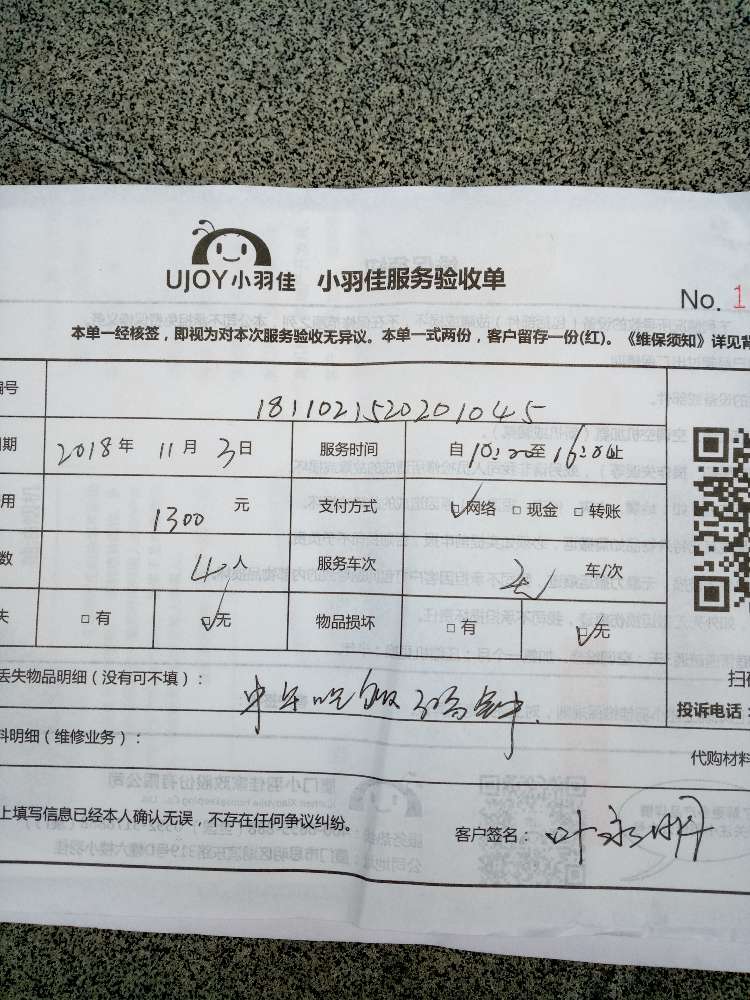 UJOY小羽佳 小羽佳服务验收单
No. 1
本单一经核签，即视为对本次服务验收无异议。本单一式两份，客户留存一份(红)。《维保须知》详见背
编号 1811021520201045
日期 2018年 11月 3日 服务时间 自10:00至16:00止
用 1300 元 支付方式 ☑网络 □现金 □转账
数 4人 服务车次 车/次
失 □有 ☑无 物品损坏 □有 ☑无
扫
丢失物品明细（没有可不填）： 中午吃饭
投诉电话：
料明细（维修业务）：
代购材料
上填写信息已经本人确认无误，不存在任何争议纠纷。
客户签名： 叶永明